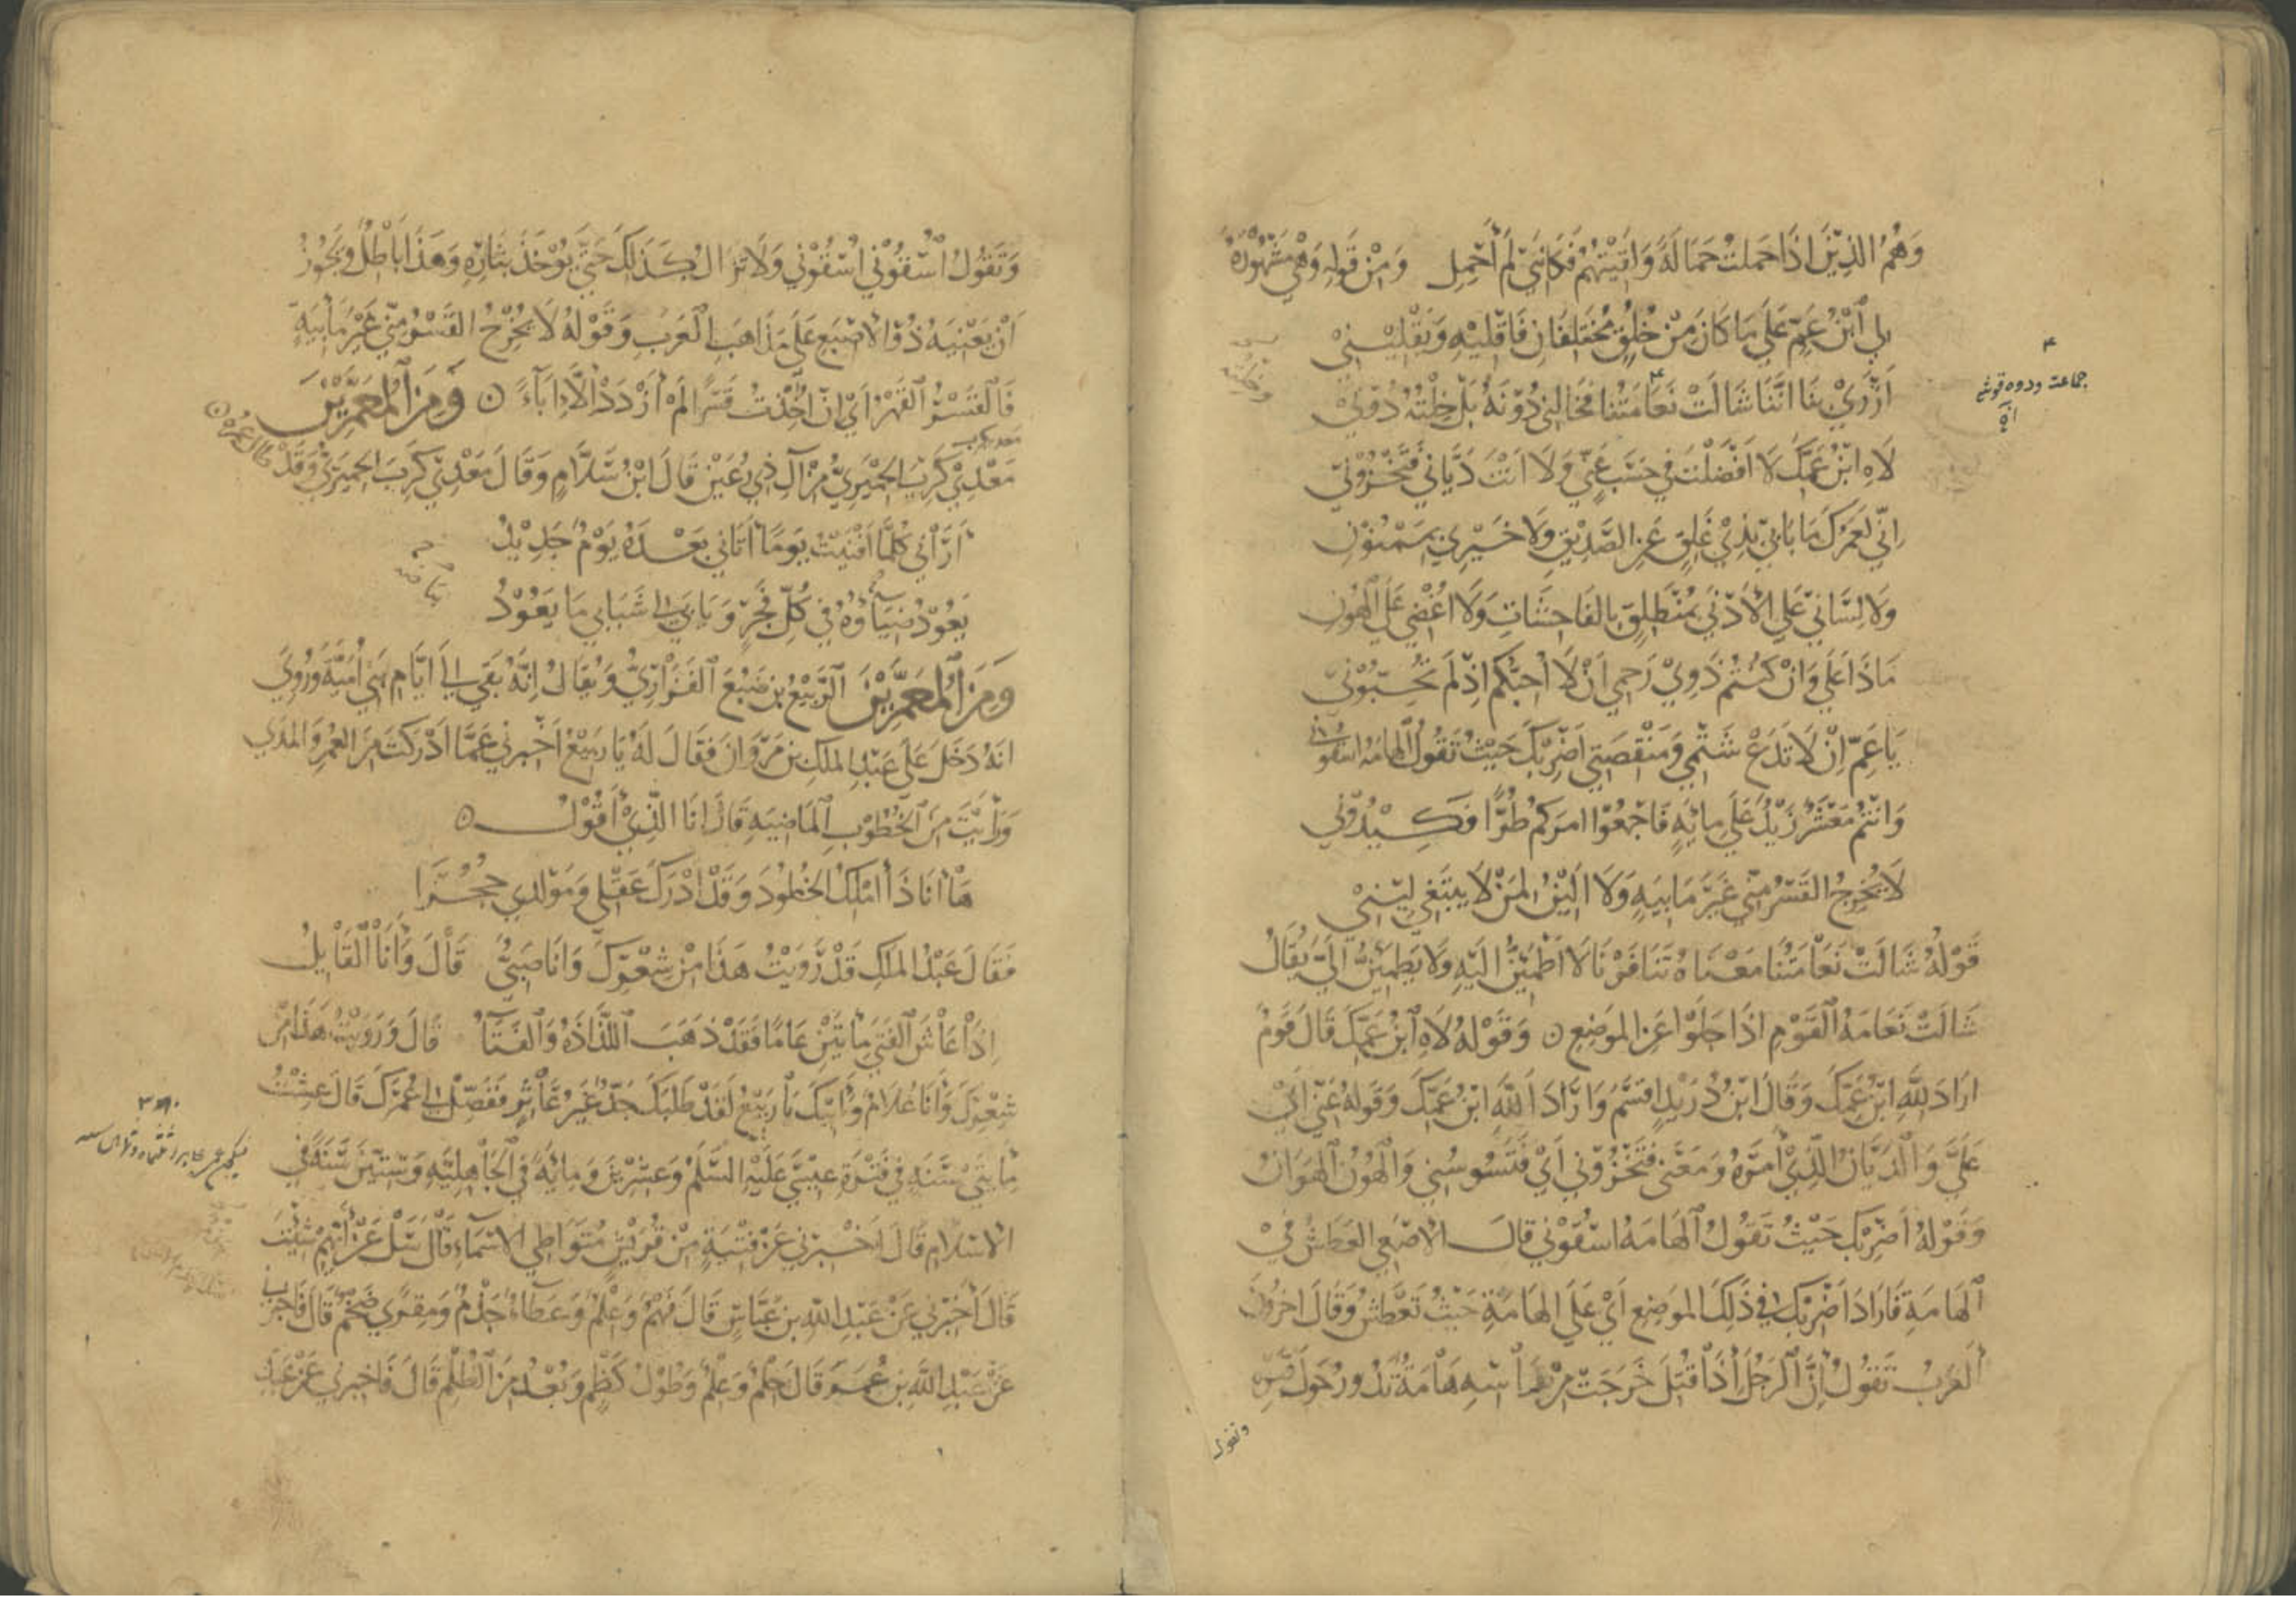 وَهُمُ الَّذِيْنَ اِذَا حَمَلتُ حَمَالَةً وَلَقيْتُهُمْ فَكَانَّنِي لَمْ اَحْمِلِ وَمِنْ قَولِهِ وَهْيَ مَشْهُوْرَةٌ
لِي ابْنُ عَمٍّ عَلَي مَا كَانَ مِنْ خُلُقٍ مُخْتَلِفَانِ فَاَقْلِيْهِ وَيَقْلِيْنِيْ
اَزْرَيْ بِنَا اَنَّنَا شَالَتْ نَعَامَتُنَا فَخَالَنِي دُوْنَهُ بَلْ خِلْتُهُ دُوْنِيْ
لَاهِ ابْنُ عَمِّكَ لَا اَفْضَلْتَ فِي حَسَبٍ عَنِّي وَلَا اَنْتَ دَيَّانِي فَتَخْزُوْنِيْ
اِنِّي لَعَمْرُكَ مَا بَابِيْ بِذِيْ غَلَقٍ عَنِ الصَّدِيْقِ وَلَا خَيْرِيْ بِمَمْنُوْنِ
وَلَا لِسَانِيْ عَلَي الْاَدْنَيْ بِمُنْطَلِقٍ بِالفَاحِشَاتِ وَلَا اُغْضِي عَلَي الهُوْنِ
مَاذَا عَلَيَّ وَاِنْ كُنْتُمْ ذَوِيْ رَحِمِي اَنْ لَا اُحِبَّكُمْ اِذْ لَمْ تُحِبُّوْنِيْ
يَا عَمْرُو اِنْ لَا تَدَعْ شَتْمِي وَمَنْقَصَتِي اَضْرِبْكَ حَيْثُ تَقُوْلُ الهَامَةُ اسْقُوْنِي
وَاَنْتُمُ مَعْشَرٌ زَيْدٌ عَلَي مِايَةٍ فَاَجْمِعُوْا امرَكُمْ طُرًّا فَكِيْدُوْنِي
لَا يُخْرِجُ القَسْرُ مِنِّي غَيْرَ مَابِيَةٍ وَلَا اَلِيْنُ لِمَنْ لَا يَبْتَغِي لِيْنِيْ
قَوْلُهُ شَالَتْ نَعَامَتُنَا مَعْنَاهُ تَنَافَرْنَا لَا اَطْمَئِنُّ اِلَيْهِ وَلَا يَطْمَئِنُّ اِلَيَّ يُقَالُ
شَالَتْ نَعَامَةُ الْقَوْمِ اِذَا جَلَوْا عَنِ الموْضِعِ ٥ وَقَوْلُهُ لَاهِ ابْنُ عَمِّكَ قَالَ قَوْمٌ
ارَادَ لِلّٰهِ ابْنُ عَمِّكَ وَقَالَ ابْنُ دُرَيْدٍ اقْسَمَ وَارَادَ اللّٰهِ ابْنُ عَمِّكَ وَقَولُهُ عَنِّي اَيْ
عَلَيَّ وَالدَّيَّانُ الَّذِيْ اَمْرُهُ وَمَعْنَي فَتَخْزُوْنِي اَيْ فَتَسُوسُنِي وَالْهُوْنُ الْهَوَانُ
وَقَوْلُهُ اَضْرِبْكَ حَيْثُ تَقُوْلُ الْهَامَةُ اسْقُوْنِي قَالَ الْاَصْمَعِي العَطَشُ فِيْ
الْهَامَةِ فَارَادَ اَضْرِبْكَ فِي ذَلِكَ الموْضِعِ اَيْ عَلَي الهَامَةِ حَيْثُ تَعْطَشُ وَقَالَ اخَرُوْنَ
الْعَرَبُ تَقُوْلُ اِنَّ الرَّجُلَ اِذَا قُتِلَ خَرَجَتْ مِنْ رَاْسِهِ هَامَةٌ تَدُوْرُ حَوْلَ قَبْرِهِ
وتقول
وَتَقُوْلُ اسْقُوْنِي اسْقُوْنِي وَلَا تَزَالُ كَذَلِكَ حَتَّي يُوْخَذَ بِثَارِهِ وَهَذَا بَاطِلٌ وَيَجُوْزُ
اَنْ يَعْنِيَهُ ذُوْ الْاصْبَعِ عَلَي مَذَاهِبِ الْعَرَبِ وَقَوْلُهُ لَا يُخْرِجُ القَسْرُ مِنِّي غَيْرَ مَابِيَةٍ
فَالْقَسْرُ الْقَهْرُ اَيْ اِنْ اُخِذْتُ قَسْرًا لَمْ اَزْدَدْ اِلَّا اِبَآءً ٥ وَمِنَ الْمُعَمَّرِيْنَ
مَعْدِيْ كَرِبَ الحِمْيَرِيُّ مِنْ آلِ ذِيْ رُعَيْنٍ قَالَ ابْنُ سَلَّامٍ وَقَالَ مَعْدِيْ كَرِبَ الحِمْيَرِيُّ وَقَدْ طَالَ عُمْرُهُ ٥
اَرَانِي كُلَّمَا اَفْنَيْتُ يَومًا اَتَانِي بَعْدَهُ يَوْمٌ جَدِيْدُ
يَعُوْدُ ضِيَاؤُهُ فِي كُلِّ فَجْرٍ وَيَابَي لِي شَبَابِي مَا يَعُوْدُ
وَمِنَ الْمُعَمَّرِيْنَ الرَّبِيْعُ بْن ضَبُعَ الْفَزَارِيُّ وَيُقَالُ اِنَّهُ بَقِيَ اِلَي اَيَّامِ بَنِي اُمَيَّةَ وَرُوِيَ
انَّهُ دَخَلَ عَلَي عَبْدِ الملِكِ بْنِ مَرْوَانَ فَقَالَ لَهُ يَا رَبِيْعُ اَخْبِرْنِي عَمَّا اَدْرَكْتَ مِنَ العُمْرِ وَالمَدَي
وَرَاَيْتَ مِنَ الْخُطُوْبِ الْمَاضِيَةِ قَالَ اِنَا الَّذِيْ اَقُوْلُ ٥
هَا اَنَا ذَا آمُلُ الخُلُودَ وَقَدْ اَدْرَكَ عَقْلِي وَمَوْلِدِي حُجُرَا
فَقَالَ عَبْدُ الملِكِ قَدْ رَوَيْتُ هَذَا مِنْ شِعْرِكَ وَانَا صَبِيٌّ قَالَ وَاَنَا الْقَايِلُ
اِذَا عَاشَ الْفَتَي مِايَتَيْنِ عَامًا فَقَدْ ذَهَبَ اللَّذَاذَةُ وَالْفَتَآءُ قَالَ وَرَوَيْتُ هَذَا مِنْ
شِعْرِكَ وَاَنَا غُلَامٌ وَاَبِيْكَ يَا رَبِيْعُ لَقَدْ طَلَبَكَ جَدٌّ غَيْرُ عَاثِرٍ فَفَصِّلْ لِي عُمْرَكَ قَالَ عِشْتُ
مِايَتَيْ سَنَةٍ فِي فَتْرَةِ عِيْسَيَ عَلَيْهِ السَّلَمُ وَعِشْرِيْنَ وَمِايَةً فِي الْجَاهِلِيَّةِ وَسِتِّيْنَ سَنَةً فِي
الْاسْلَامِ قَالَ اَخْبِرْنِي عَنْ فِتْيَةٍ مِنْ قُرَيْشٍ مُتَوَاطِي الْاسْمَاءِ قَالَ سَلْ عَنْ اَيِّهِمْ شِيْتَ
قَالَ اَخْبِرْنِي عَنْ عَبْدِ اللّٰهِ بْنِ عَبَّاسٍ قَالَ فَهْمٌ وَعِلْمٌ وَعَطَاءٌ جَذْمٌ وَمِقْرًي ضَخْمٌ قَالَ فَاَخْبِرْنِي
عَنْ عَبْدِ اللّٰهِ بْنِ عُمَرَ قَالَ حِلْمٌ وَعِلْمٌ وَطُوْلُ كَظْمٍ وَبُعْدٌ مِنَ الْظُلْمِ قَالَ فَاَخْبِرْنِي عَنْ عَبْدِ